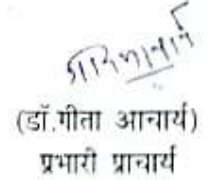 (डॉ.गीता आचार्य)
प्रभारी प्राचार्य